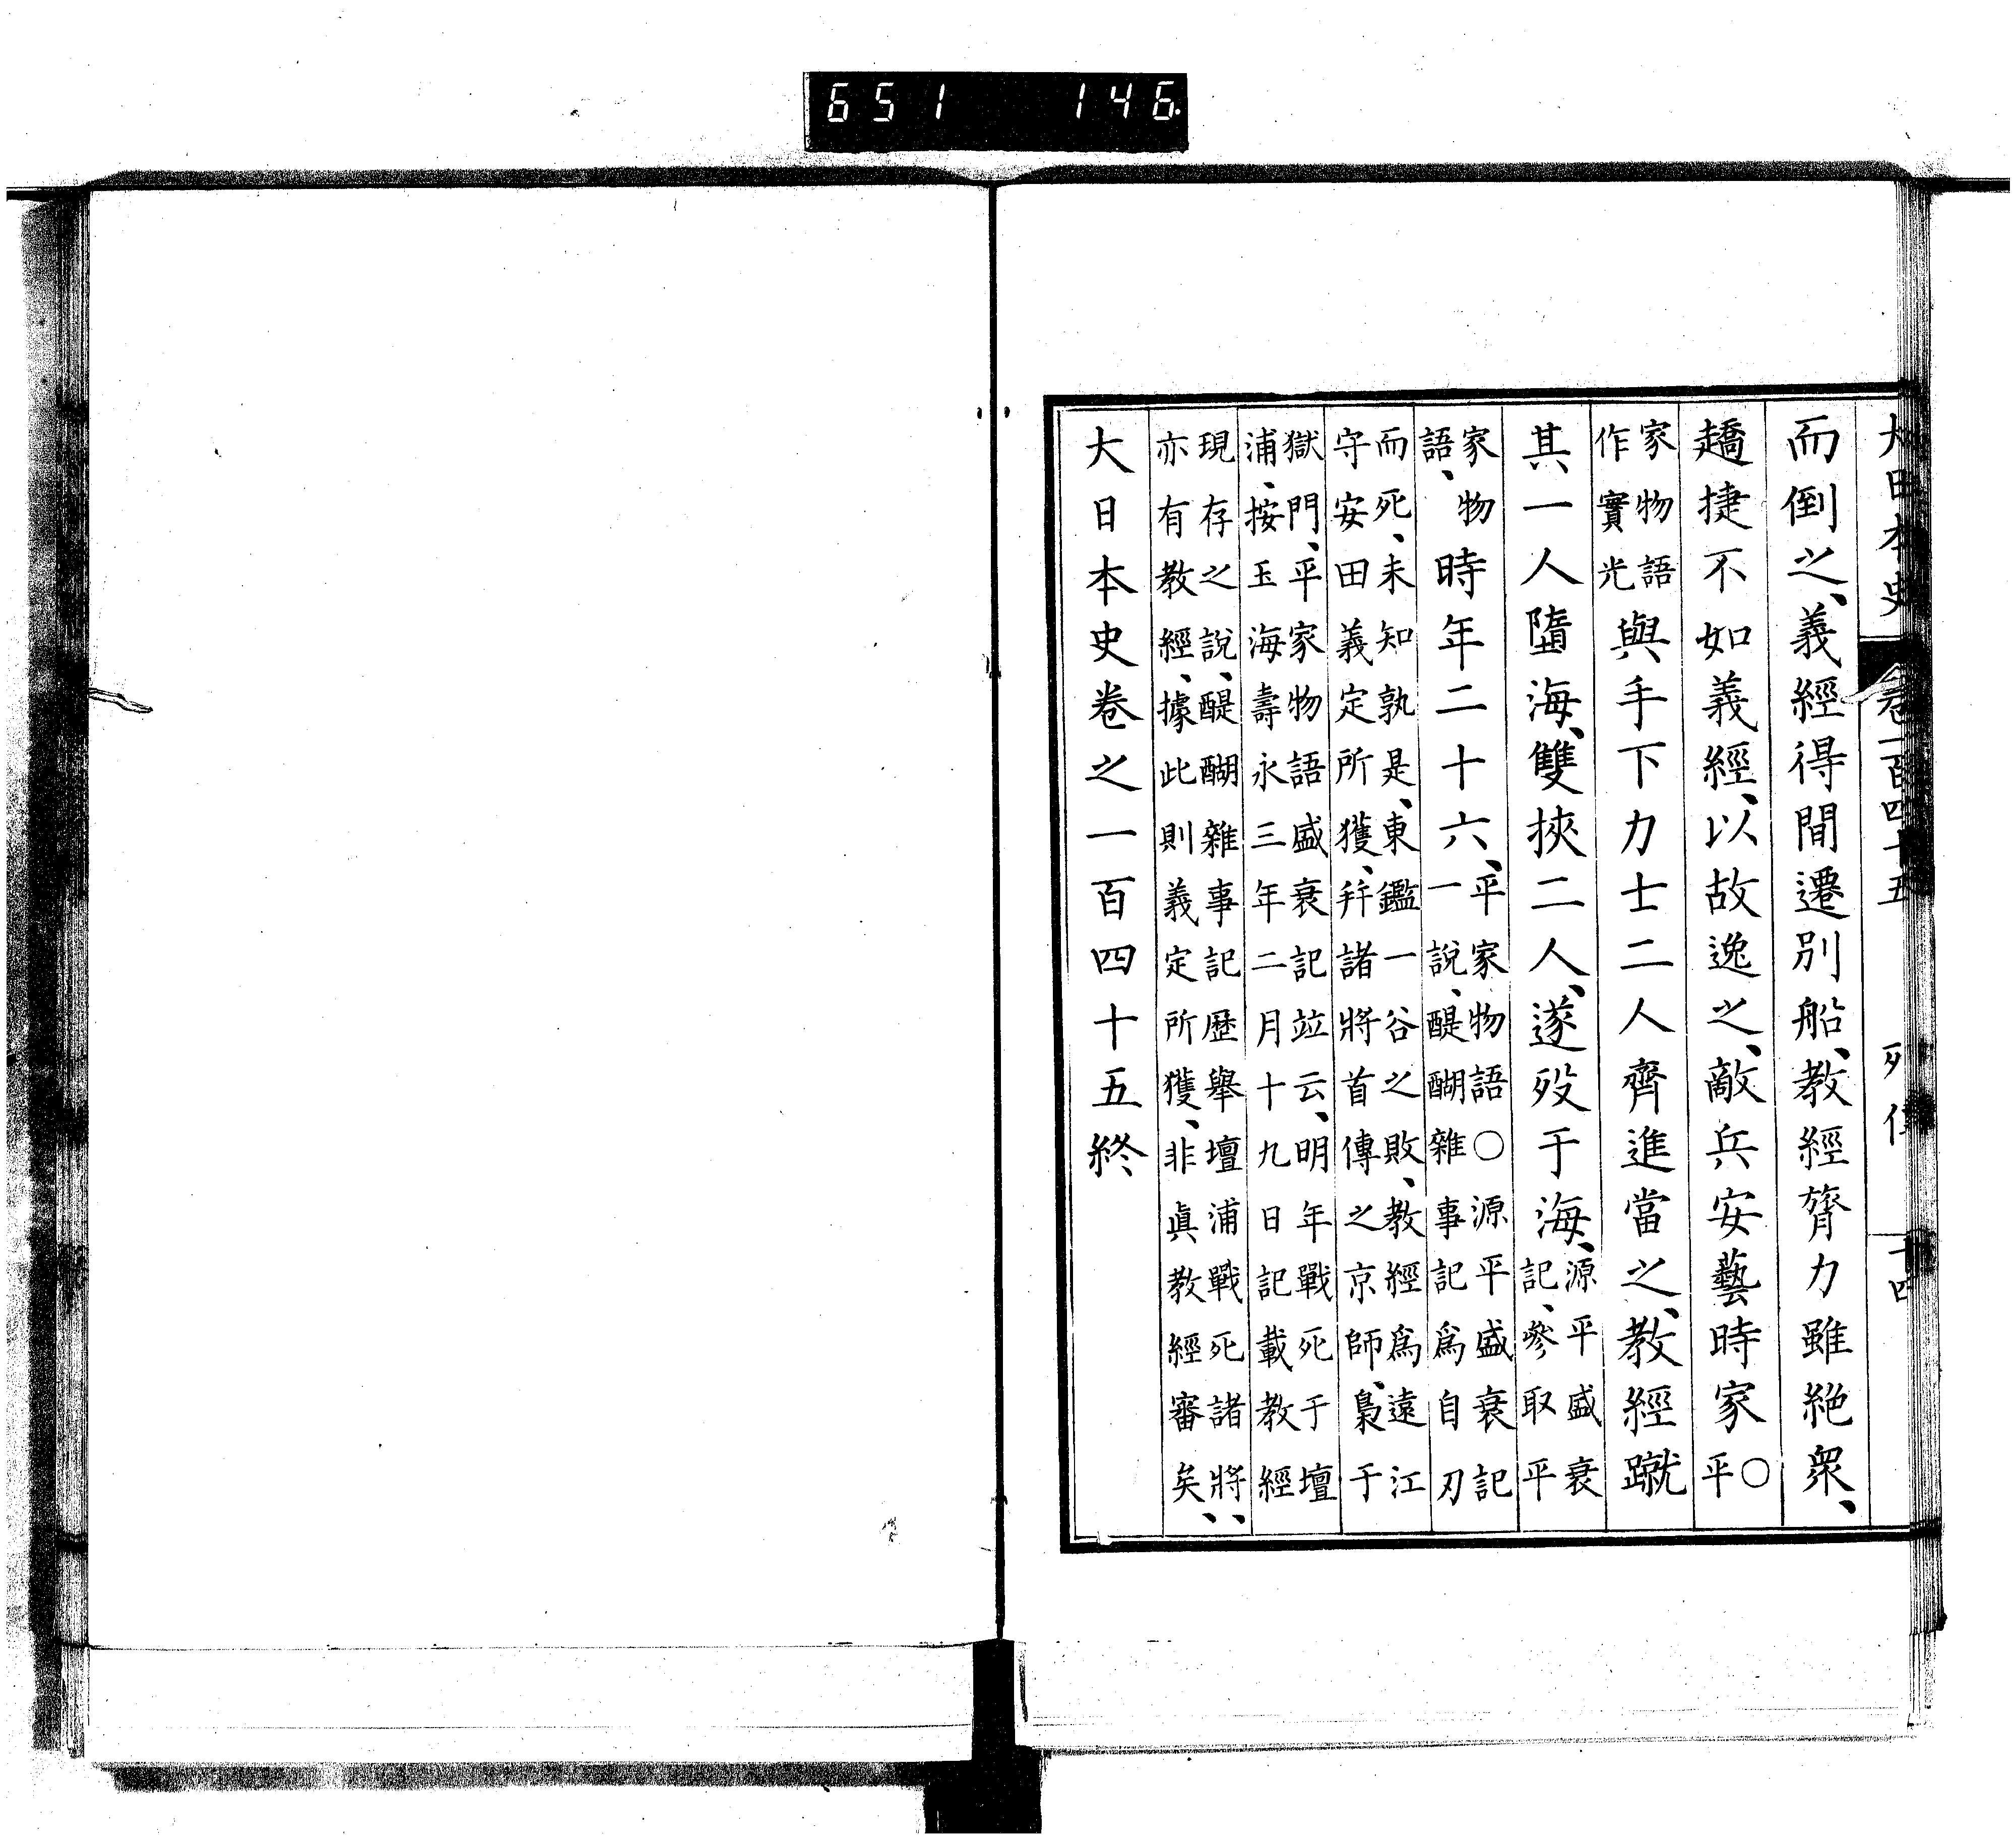 651 146
大日本史 卷一百四十五 列傳 十四
而倒之、義經得間遷別船、教經膂力雖絶衆、
趫捷不如義經、以故逸之、敵兵安藝時家○平
家物語作實光與手下力士二人齊進當之、教經蹴
其一人墮海、雙挾二人、遂歿于海、源平盛衰記、參取平
家物語、時年二十六、平家物語○源平盛衰記一說、醍醐雜事記爲自刃
而死、未知孰是、東鑑一谷之敗、教經爲遠江守安田義定所獲、幷諸將首傳之京師、梟于
獄門、平家物語盛衰記竝云、明年戰死于壇浦、按玉海壽永三年二月十九日記載教經
現存之說、醍醐雜事記歷舉壇浦戰死諸將、亦有教經、據此則義定所獲、非眞教經審矣、
大日本史卷之一百四十五終